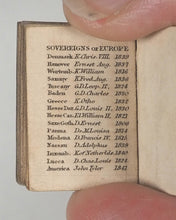 SOVEREIGNS OF EUROPE
Denmark K. Chris. VIII. 1839
Hanover Ernest Aug. 1837
Wurtemb. K. William 1816
Saxony K. Fred. Aug. 1836
Tuscany G.D. Leop. II. 1824
Baden G.D. Charles 1830
Greece K. Otho 1832
Hesse Dar. G.D. Louis II. 1830
Hesse Cas. El. William II. 1821
Saxe Goth. D. Ernest 1806
Parma Ds. M. Louisa 1814
Modena D. Francis IV. 1814
Nassau D. Adolphus 1839
Luxemb. K. of Netherlds 1840
Lucca D. Chas. Louis 1824
America John Tyler 1841